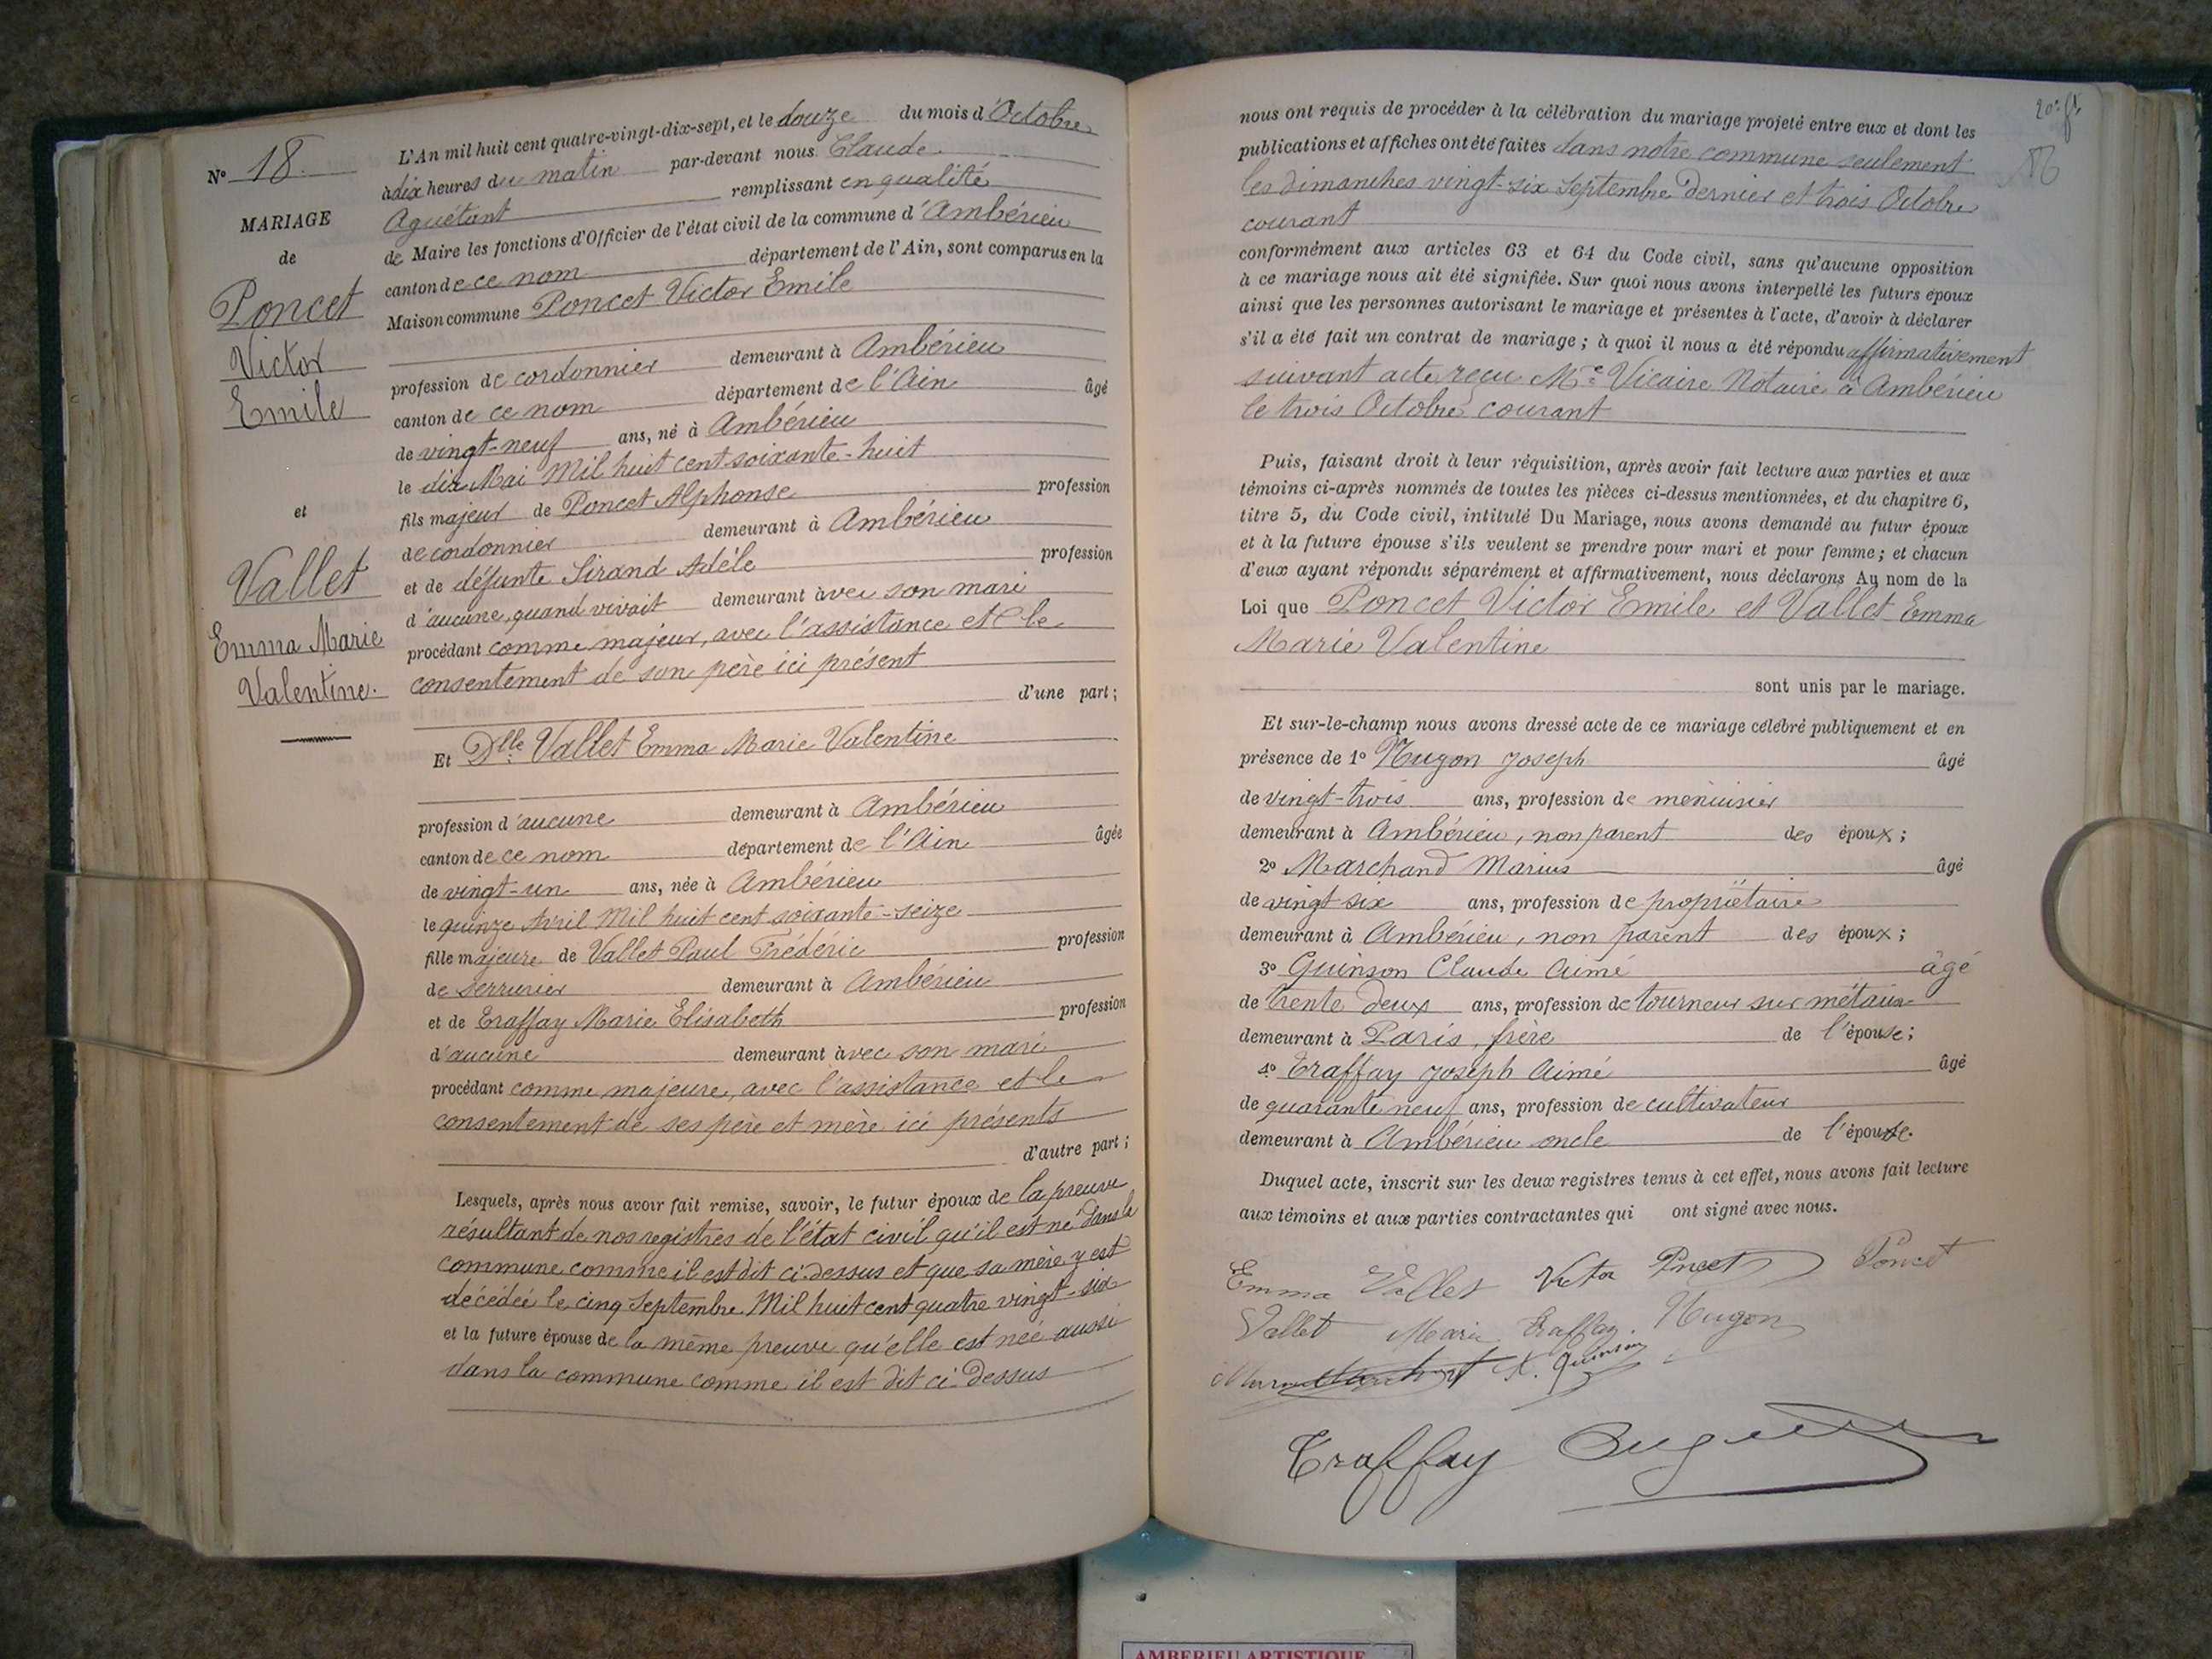 L'An mil huit cent quatre-vingt-dix-sept, et le douze du mois d'Octobre
N° 18
à dix heures du matin par-devant nous Claude
Aguétant remplissant en qualité
MARIAGE
de Maire les fonctions d'Officier de l'état civil de la commune d'Ambérieu
de
canton de ce nom département de l'Ain, sont comparus en la
Poncet
Maison commune Poncet Victor Emile
Victor
profession de cordonnier demeurant à Ambérieu
Emile
canton de ce nom département de l'Ain âgé
de vingt-neuf ans, né à Ambérieu
le dix Mai Mil huit cent soixante-huit
et
fils majeur de Poncet Alphonse profession
de cordonnier demeurant à Ambérieu
Vallet
et de défunte Sirand Adèle profession
d'aucune, quand vivait demeurant avec son mari
Emma Marie
procédant comme majeur, avec l'assistance et le
Valentine.
consentement de son père ici présent
d'une part;
Et Dlle Vallet Emma Marie Valentine
profession d'aucune demeurant à Ambérieu
canton de ce nom département de l'Ain âgée
de vingt-un ans, née à Ambérieu
le quinze Avril Mil huit cent soixante-seize
fille majeure de Vallet Paul Frédéric profession
de Serrurier demeurant à Ambérieu
et de Traffay Marie Elisabeth profession
d'aucune demeurant avec son mari
procédant comme majeure, avec l'assistance et le
consentement de ses père et mère ici présents
d'autre part;
Lesquels, après nous avoir fait remise, savoir, le futur époux de la preuve
résultant de nos registres de l'état civil qu'il est né dans la
commune comme il est dit ci-dessus et que sa mère y est
décédée le cinq Septembre Mil huit cent quatre vingt-six
et la future épouse de la même preuve qu'elle est née aussi
dans la commune comme il est dit ci-dessus
nous ont requis de procéder à la célébration du mariage projeté entre eux et dont les
publications et affiches ont été faites dans notre commune seulement
les dimanches vingt-six Septembre dernier et trois Octobre
courant
conformément aux articles 63 et 64 du Code civil, sans qu'aucune opposition
à ce mariage nous ait été signifiée. Sur quoi nous avons interpellé les futurs époux
ainsi que les personnes autorisant le mariage et présentes à l'acte, d'avoir à déclarer
s'il a été fait un contrat de mariage; à quoi il nous a été répondu affirmativement
suivant acte reçu Me Vicaire Notaire à Ambérieu
le trois Octobre courant
Puis, faisant droit à leur réquisition, après avoir fait lecture aux parties et aux
témoins ci-après nommés de toutes les pièces ci-dessus mentionnées, et du chapitre 6,
titre 5, du Code civil, intitulé Du Mariage, nous avons demandé au futur époux
et à la future épouse s'ils veulent se prendre pour mari et pour femme; et chacun
d'eux ayant répondu séparément et affirmativement, nous déclarons Au nom de la
Loi que Poncet Victor Emile et Vallet Emma
Marie Valentine
sont unis par le mariage.
Et sur-le-champ nous avons dressé acte de ce mariage célébré publiquement et en
présence de 1° Hugon Joseph âgé
de vingt-trois ans, profession de menuisier
demeurant à Ambérieu, non parent des époux;
2° Marchand Marius âgé
de vingt six ans, profession de propriétaire
demeurant à Ambérieu, non parent des époux;
3° Guinson Claude Aimé âgé
de trente deux ans, profession de tourneur sur métaux
demeurant à Paris, frère de l'épouse;
4° Traffay Joseph Aimé âgé
de quarante neuf ans, profession de cultivateur
demeurant à Ambérieu oncle de l'épouse.
Duquel acte, inscrit sur les deux registres tenus à cet effet, nous avons fait lecture
aux témoins et aux parties contractantes qui ont signé avec nous.
Emma Vallet Victor Poncet Poncet
Vallet Marie Traffay. Hugon
Guinson
Traffay
AMBERIEU ARTISTIQUE